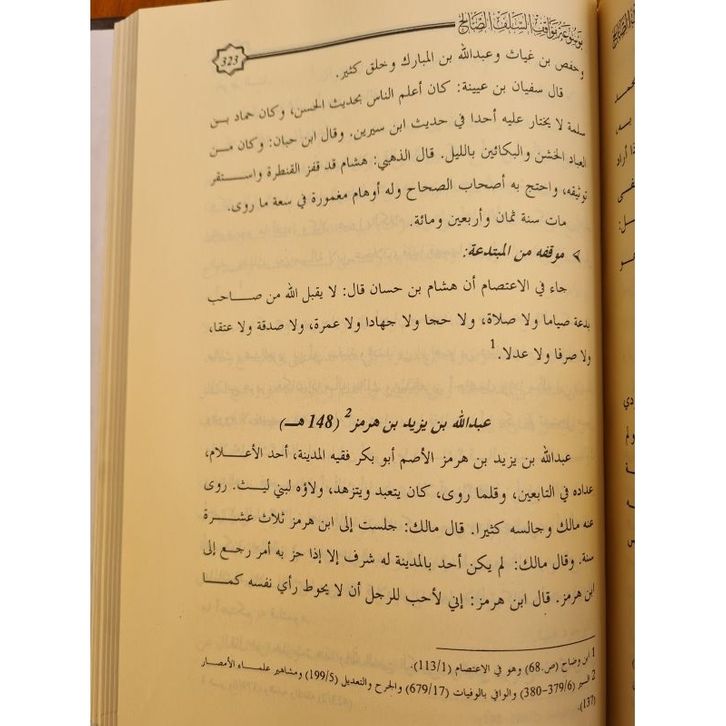 موسوعة مواقف السلف الصالح
323
وحفص بن غياث وعبدالله بن المبارك وخلق كثير.
قال سفيان بن عيينة: كان أعلم الناس بحديث الحسن، وكان حماد بن
سلمة لا يختار عليه أحدا في حديث ابن سيرين. وقال ابن حبان: وكان من
العباد الخشن والبكائين بالليل. قال الذهبي: هشام قد قفز القنطرة واستقر
توثيقه، واحتج به أصحاب الصحاح وله أوهام مغمورة في سعة ما روى.
مات سنة ثمان وأربعين ومائة.
موقفه من المبتدعة:
جاء في الاعتصام أن هشام بن حسان قال: لا يقبل الله من صاحب
بدعة صياما ولا صلاة، ولا حجا ولا جهادا ولا عمرة، ولا صدقة ولا عتقا،
ولا صرفا ولا عدلا.1
عبدالله بن يزيد بن هرمز2 (148 هـ)
عبدالله بن يزيد بن هرمز الأصم أبو بكر فقيه المدينة، أحد الأعلام،
عداده في التابعين، وقلما روى، كان يتعبد ويتزهد، ولاؤه لبني ليث. روى
عنه مالك وجالسه كثيرا. قال مالك: جلست إلى ابن هرمز ثلاث عشرة
سنة. وقال مالك: لم يكن أحد بالمدينة له شرف إلا إذا حز به أمر رجع إلى
ابن هرمز. قال ابن هرمز: إني لأحب للرجل أن لا يحوط رأي نفسه كما
1 ابن وضاح (ص.68) وهو في الاعتصام (113/1).
2 السير (379/6-380) والوافي بالوفيات (679/17) والجرح والتعديل (199/5) ومشاهير علماء الأمصار
(137).